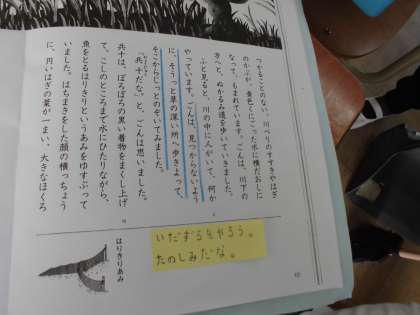 つかることのない、川べりのすすきやはぎ
のかぶが、黄色くにごった水に横だおしに
なって、もまれています。ごんは、川下の
方へと、ぬかるみ道を歩いていきました。
ふと見ると、川の中に人がいて、何か
やっています。ごんは、見つからないよう
に、そうっと草の深い所へ歩きよって、
そこからじっとのぞいてみました。
「兵十だな。」と、ごんは思いました。
兵十は、ぼろぼろの黒い着物をまくし上げ
て、こしのところまで水にひたりながら、
魚をとるはりきりというあみをゆすぶって
いました。はちまきをした顔の横っちょう
に、円いはぎの葉が一まい、大きなほくろ
はりきりあみ
いたずらをやろう。
たのしみだな。